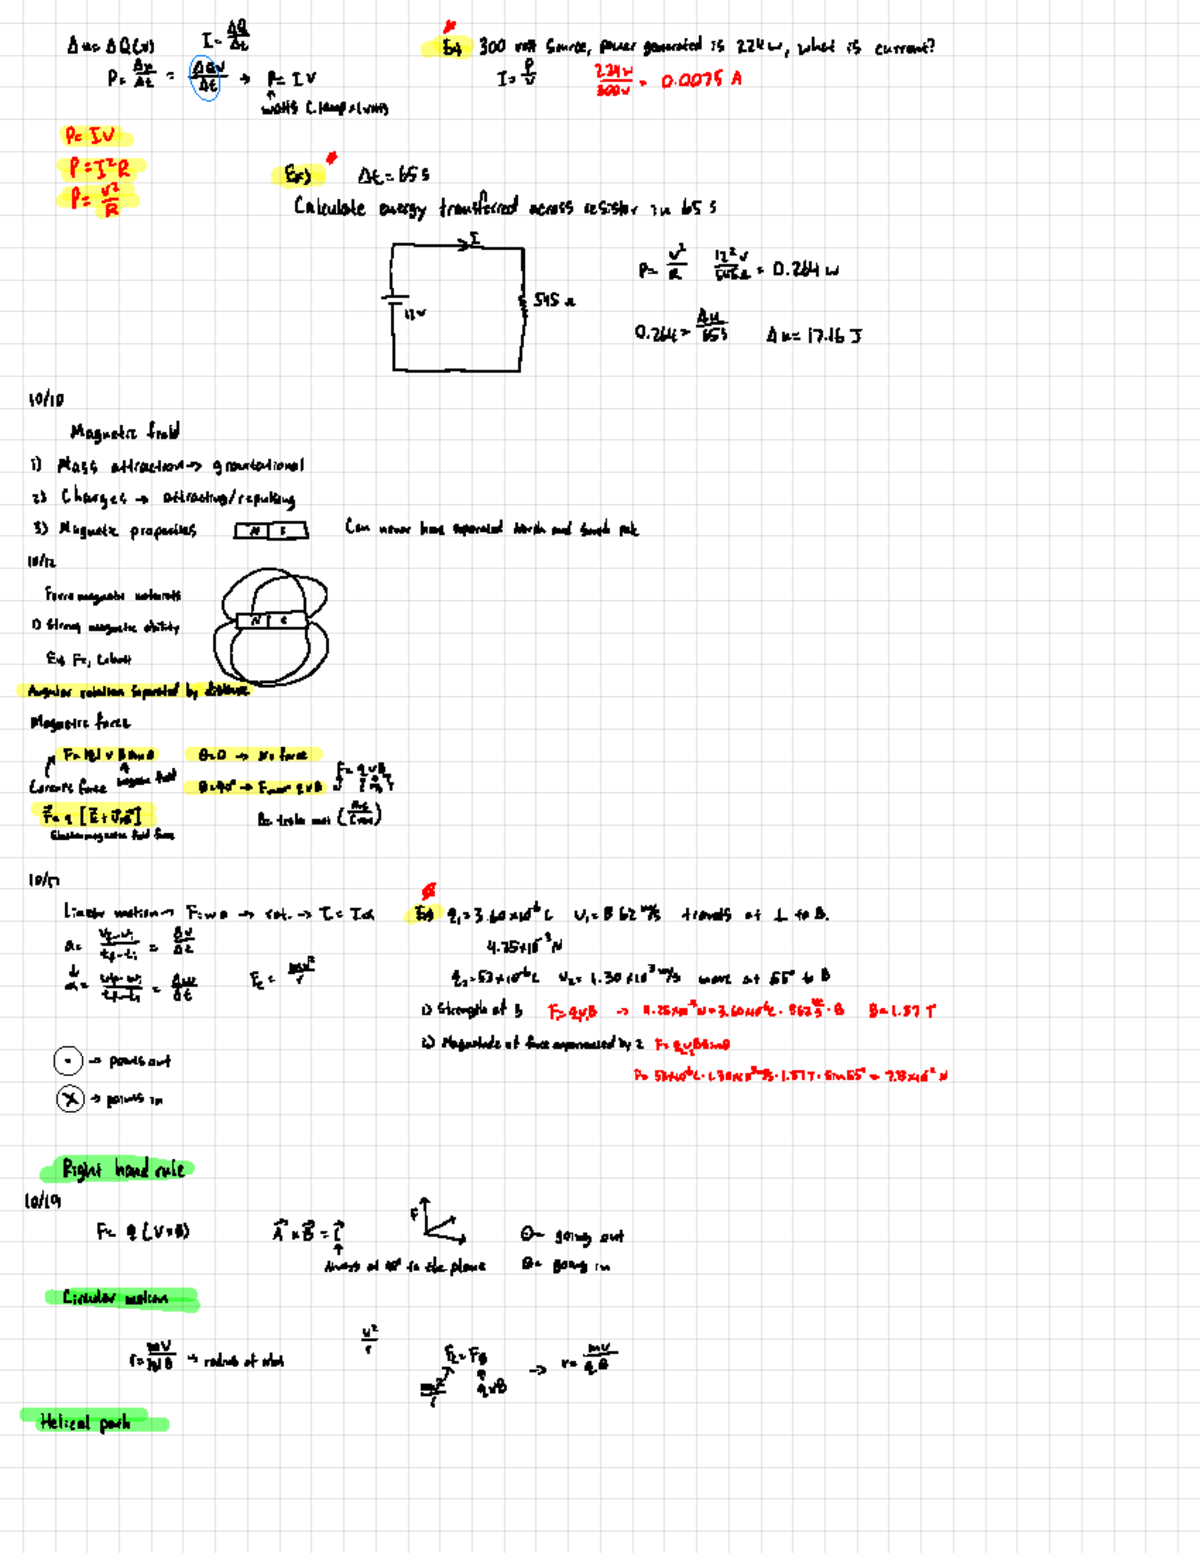 Δu = ΔQ(v)   I = ΔQ/Δt
P = Δu/Δt = ΔQV/Δt → P = IV
watts
P = IV
P = I²R
P = V²/R
Ex) 300 volt source, power generated is 2.24 w, what is current?
I = P/V   2.24w/300v = 0.0075 A
Ex) Δt = 65 s
Calculate energy transferred across resistor in 65 s
I
12v
545 Ω
P = V²/R   12²v/545Ω = 0.264 w
0.264 = Δu/65s   Δu = 17.16 J
10/10
Magnetic field
1) Mass attraction → gravitational
2) Charges → attracting/repulsing
3) Magnetic properties   N S   Can never have separated north and south pole
10/12
Ferromagnetic materials
1) Strong magnetic ability
Ex) Fe, Cobalt
N S
Angular rotation separated by distance
Magnetic force
F = |q| v B sin θ   θ = 0 → No force
Lorentz force   magnetic field   θ = 90° → Fmax = qvB   F = qvB
F⃗ = q [E⃗ + v⃗×B⃗]   B = tesla
Electromagnetic field force
10/17
Linear motion → F = ma → rot. → τ = Iα
a = (vf - vi)/(tf - ti) = Δv/Δt
α = (ωf - ωi)/(tf - ti) = Δω/Δt   Fc = mv²/r
Ex) q₁ = 3.60×10⁻⁶ C   v₁ = 862 m/s   travels at ⊥ to B.
4.25×10⁻³ N
q₂ = 53×10⁻⁶ C   v₂ = 1.30×10³ m/s   move at 55° to B
1) Strength of B   F = qvB → 4.25×10⁻³ N = 3.60×10⁻⁶ C · 862 m/s · B   B = 1.37 T
2) Magnitude of force experienced by 2   F = q₂v₂B sin θ
F = 53×10⁻⁶ C · 1.30×10³ m/s · 1.37 T · sin 55° = 7.73×10⁻² N
· → points out
X → points in
Right hand rule
10/19
F = q(v×B)   A⃗ × B⃗ = C⃗   F   ⊙ = going out
Always at 90° to the plane   ⊗ = going in
Circular motion
r = mv/|q|B → radius of   v²/r   Fc = FB → r = mv/qB
mv²/r   qvB
Helical path